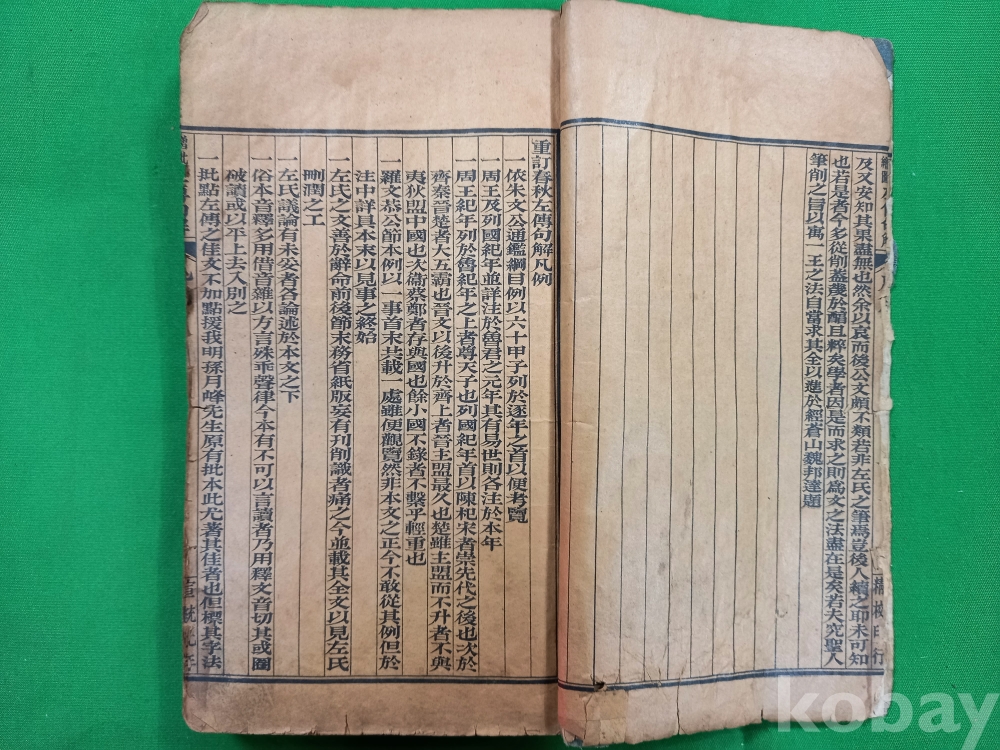 及又安知其果盡無也然余以哀而後公文頗不類若非左氏之筆焉豈後人續之耶未可知
也若是者今多從削蓋幾於醇且粹矣學者因是而求之則為文之法盡在是矣若夫究聖人
筆削之旨以寓一王之法自當求其全以進於經蒼山魏邦達題
精校印行
重訂春秋左傳句解凡例
一依朱文公通鑑綱目例以六十甲子列於逐年之首以便考覽
一周王及列國紀年並詳注於魯君之元年其有易世則各注於本年
一周王紀年列於魯紀年之上者尊天子也列國紀年首以陳杞宋者崇先代之後也次於
齊秦晉楚者大五霸也晉文以後升於齊上者晉主盟最久也楚雖主盟而不升者不與
夷狄盟中國也次衞蔡鄭者存與國也餘小國不錄者不繫乎輕重也
一羅文恭公節本例以一事首末共載一處雖便觀覽然非本文之正今不敢從其例但於
注中詳具本末以見事之終始
一左氏之文善於辭命前後節末務省紙版妄有刊削識者痛之今並載其全文以見左氏
刪潤之工
一左氏議論有未妥者各論述於本文之下
一俗本音釋多用借音雜以方言殊乖聲律今本有不可以言讀者乃用釋文音切其或圈
破讀或以平上去入別之
一批點左傳之佳文不加點援我明孫月峰先生原有批本此尤著其佳者也但標其字法
kobay